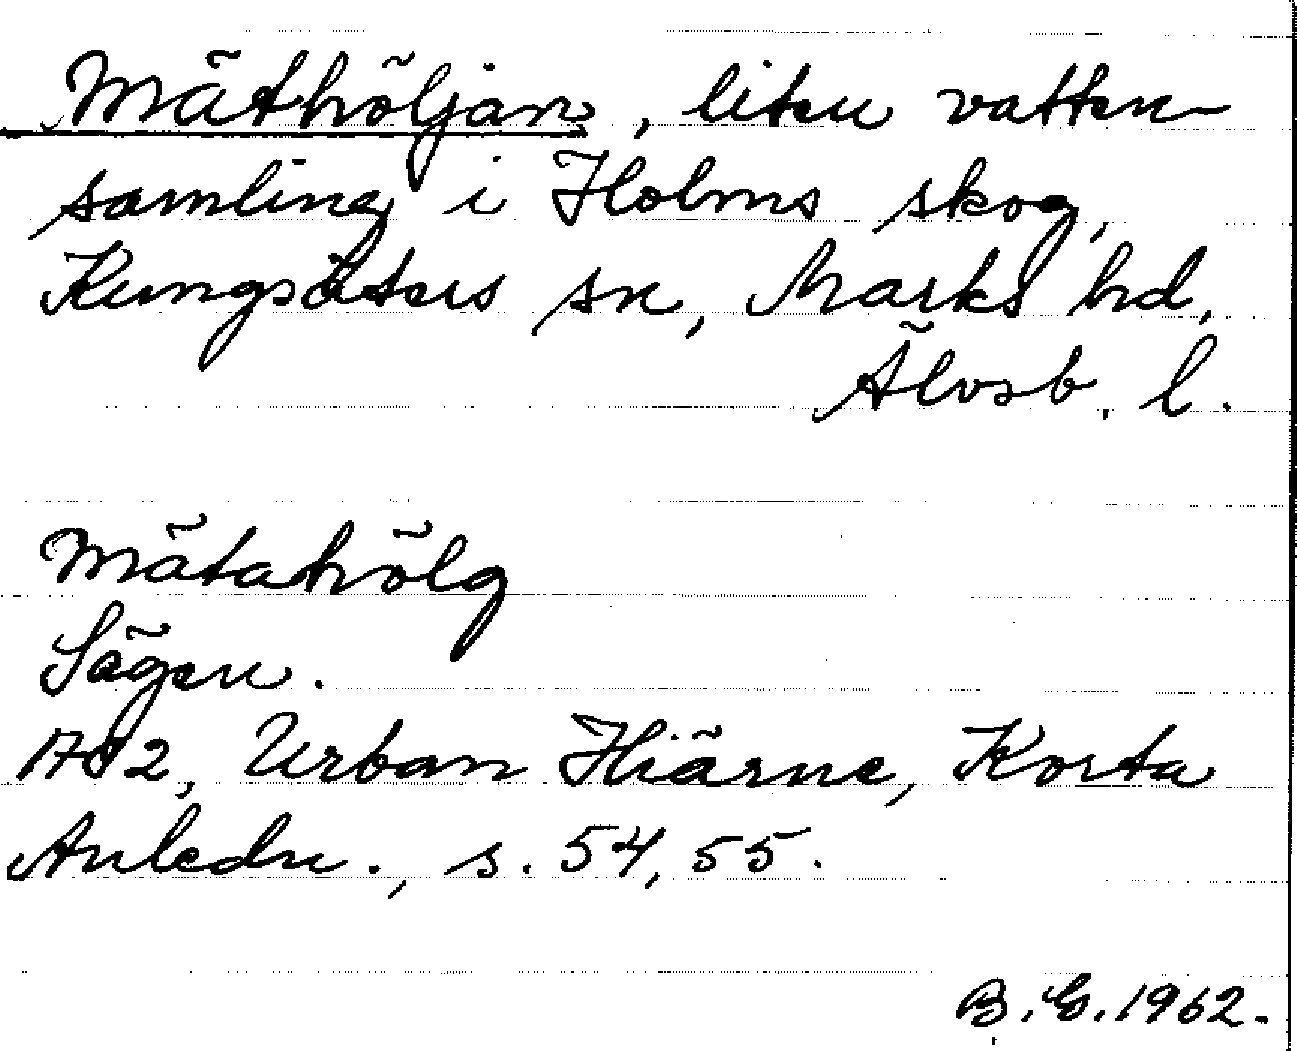 Mäthöljan, liten vatten-
samling i Holms skog,
Kungsäters sn, Marks hd,
Älvsb. l.
Mätahölg
Sägen.
1702, Urban Hiärne, Korta
Anledn., s. 54, 55.
B. E. 1962.